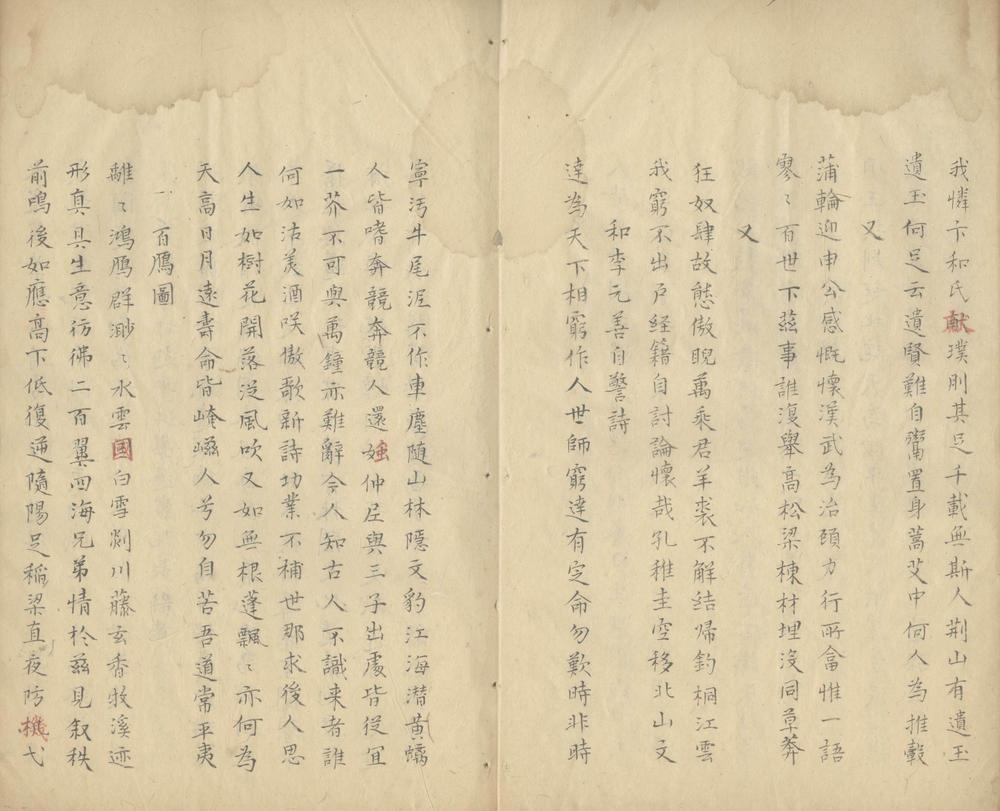 我憐卞和氏献璞刖其足千載無斯人荆山有遺玉
遺玉何足云遺賢難自鬻置身蒿艾中何人為推轂
又
蒲輪迎申公感慨懷漢武為治顧力行所畣惟一語
寥〻百世下茲事誰復舉高松梁棟材埋没同草莽
又
狂奴肆故態傲睨萬乘君羊裘不解結帰釣桐江雲
我窮不出户経籍自討論懷哉孔稚圭空移北山文
和李元善自警詩
達為天下相窮作人世師窮達有定命勿歎時非時
寧汚牛尾泥不作車塵随山林隠文豹江海潜黄螭
人皆嗜奔競奔競人還蚩仲尼與三子出處皆從冝
一芥不可與萬鐘亦難辭今人知古人不識来者誰
何如沽美酒咲傲歌新詩功業不補世那求後人思
人生如樹花開落従風吹又如無根蓬飄〻亦何為
天高日月遠壽命皆崦嵫人兮勿自苦吾道常平夷
百鴈圖
離〻鴻鴈群渺〻水雲國白雪剡川藤玄香牧溪迹
形真具生意彷彿二百翼四海兄弟情於茲見叙秩
前鳴後如應高下低復逆隨陽足稲梁直夜防機弋